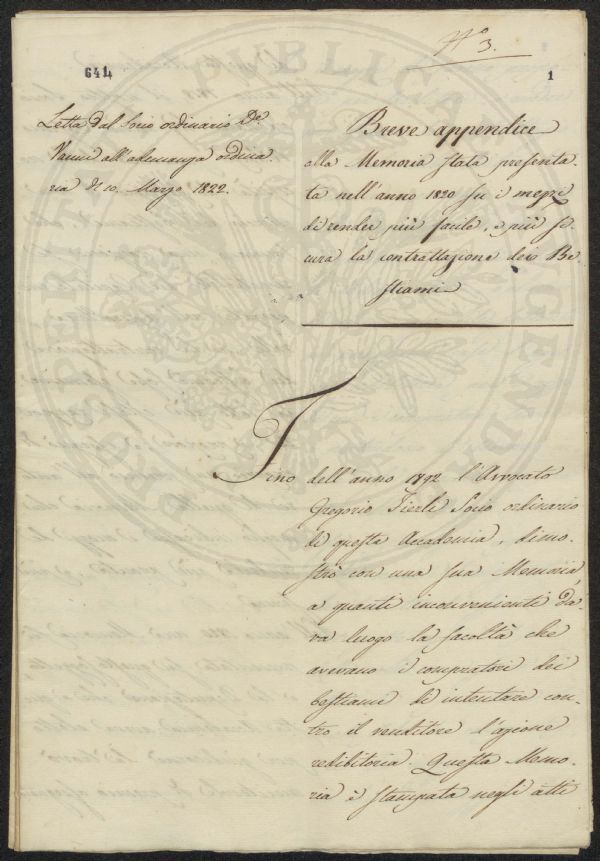 N.° 3.
641
1
Letta dal Socio ordinario D.r
Vanni all'adunanza ordina
ria de 10. Marzo 1822.
Breve appendice
alla Memoria stata presenta-
ta nell'anno 1820 su i mezzi
di render più facile, e più si
cura la contrattazione dei Be
stiami
Fino dell'anno 1792 l'Avvocato
Gregorio Fierli Socio ordinario
di questa Accademia, dimo-
strò con una sua Memoria,
a quanti inconvenienti da-
va luogo la facoltà che
avevano i compratori dei
bestiami di intentare con-
tro il venditore l'azione
redibitoria. Questa Memo-
ria è stampata negli atti
PUBLICAE
PROSPERITATI
AUGENDAE